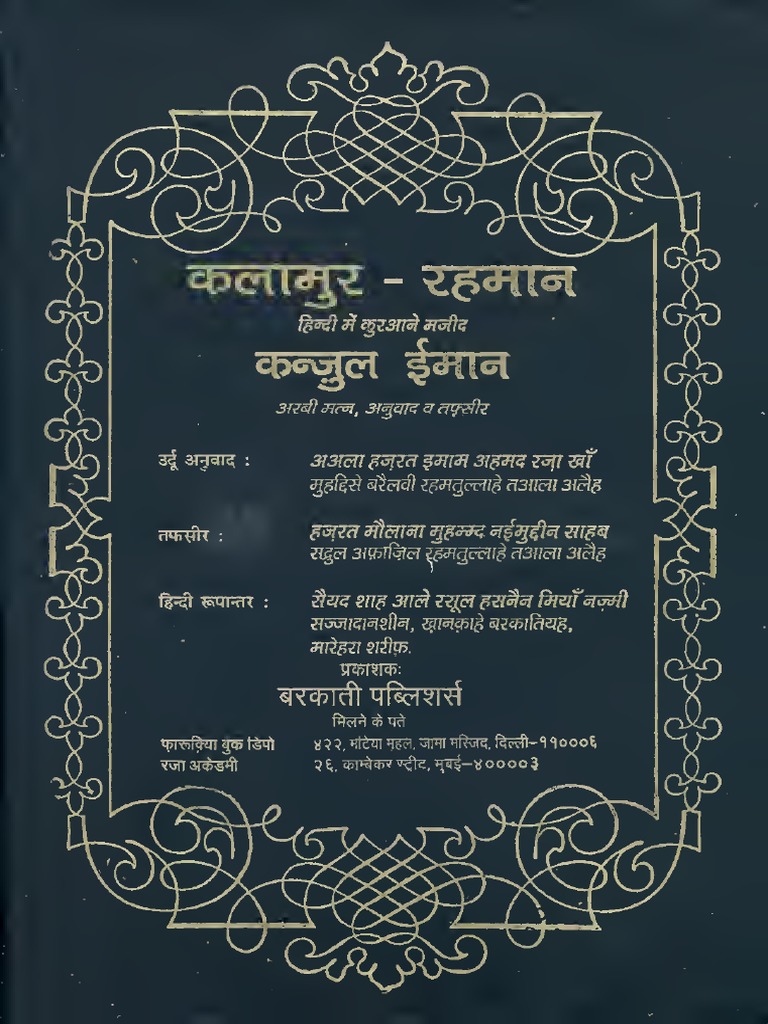 कलामुर - रहमान
हिन्दी में कुरआने मजीद
कन्ज़ुल ईमान
अरबी मत्न, अनुवाद व तफ़्सीर
उर्दू अनुवाद : अअला हज़रत इमाम अहमद रज़ा खाँ
मुहद्दिसे बरैलवी रहमतुल्लाहे तआला अलैह
तफसीर : हज़रत मौलाना मुहम्मद नईमुद्दीन साहब
सद्रुल अफ़ाज़िल रहमतुल्लाहे तआला अलैह
हिन्दी रूपान्तर : सैयद शाह आले रसूल हसनैन मियाँ नज़्मी
सज्जादानशीन, ख़ानक़ाहे बरकातियह,
मारेहरा शरीफ़.
प्रकाशकः
बरकाती पब्लिशर्स
मिलने के पते
फ़ारूक़िया बुक डिपो ४२२, मटिया महल, जामा मस्जिद, दिल्ली-११०००६
रज़ा अकेडमी २६, काम्बेकर स्ट्रीट, मुंबई-४००००३